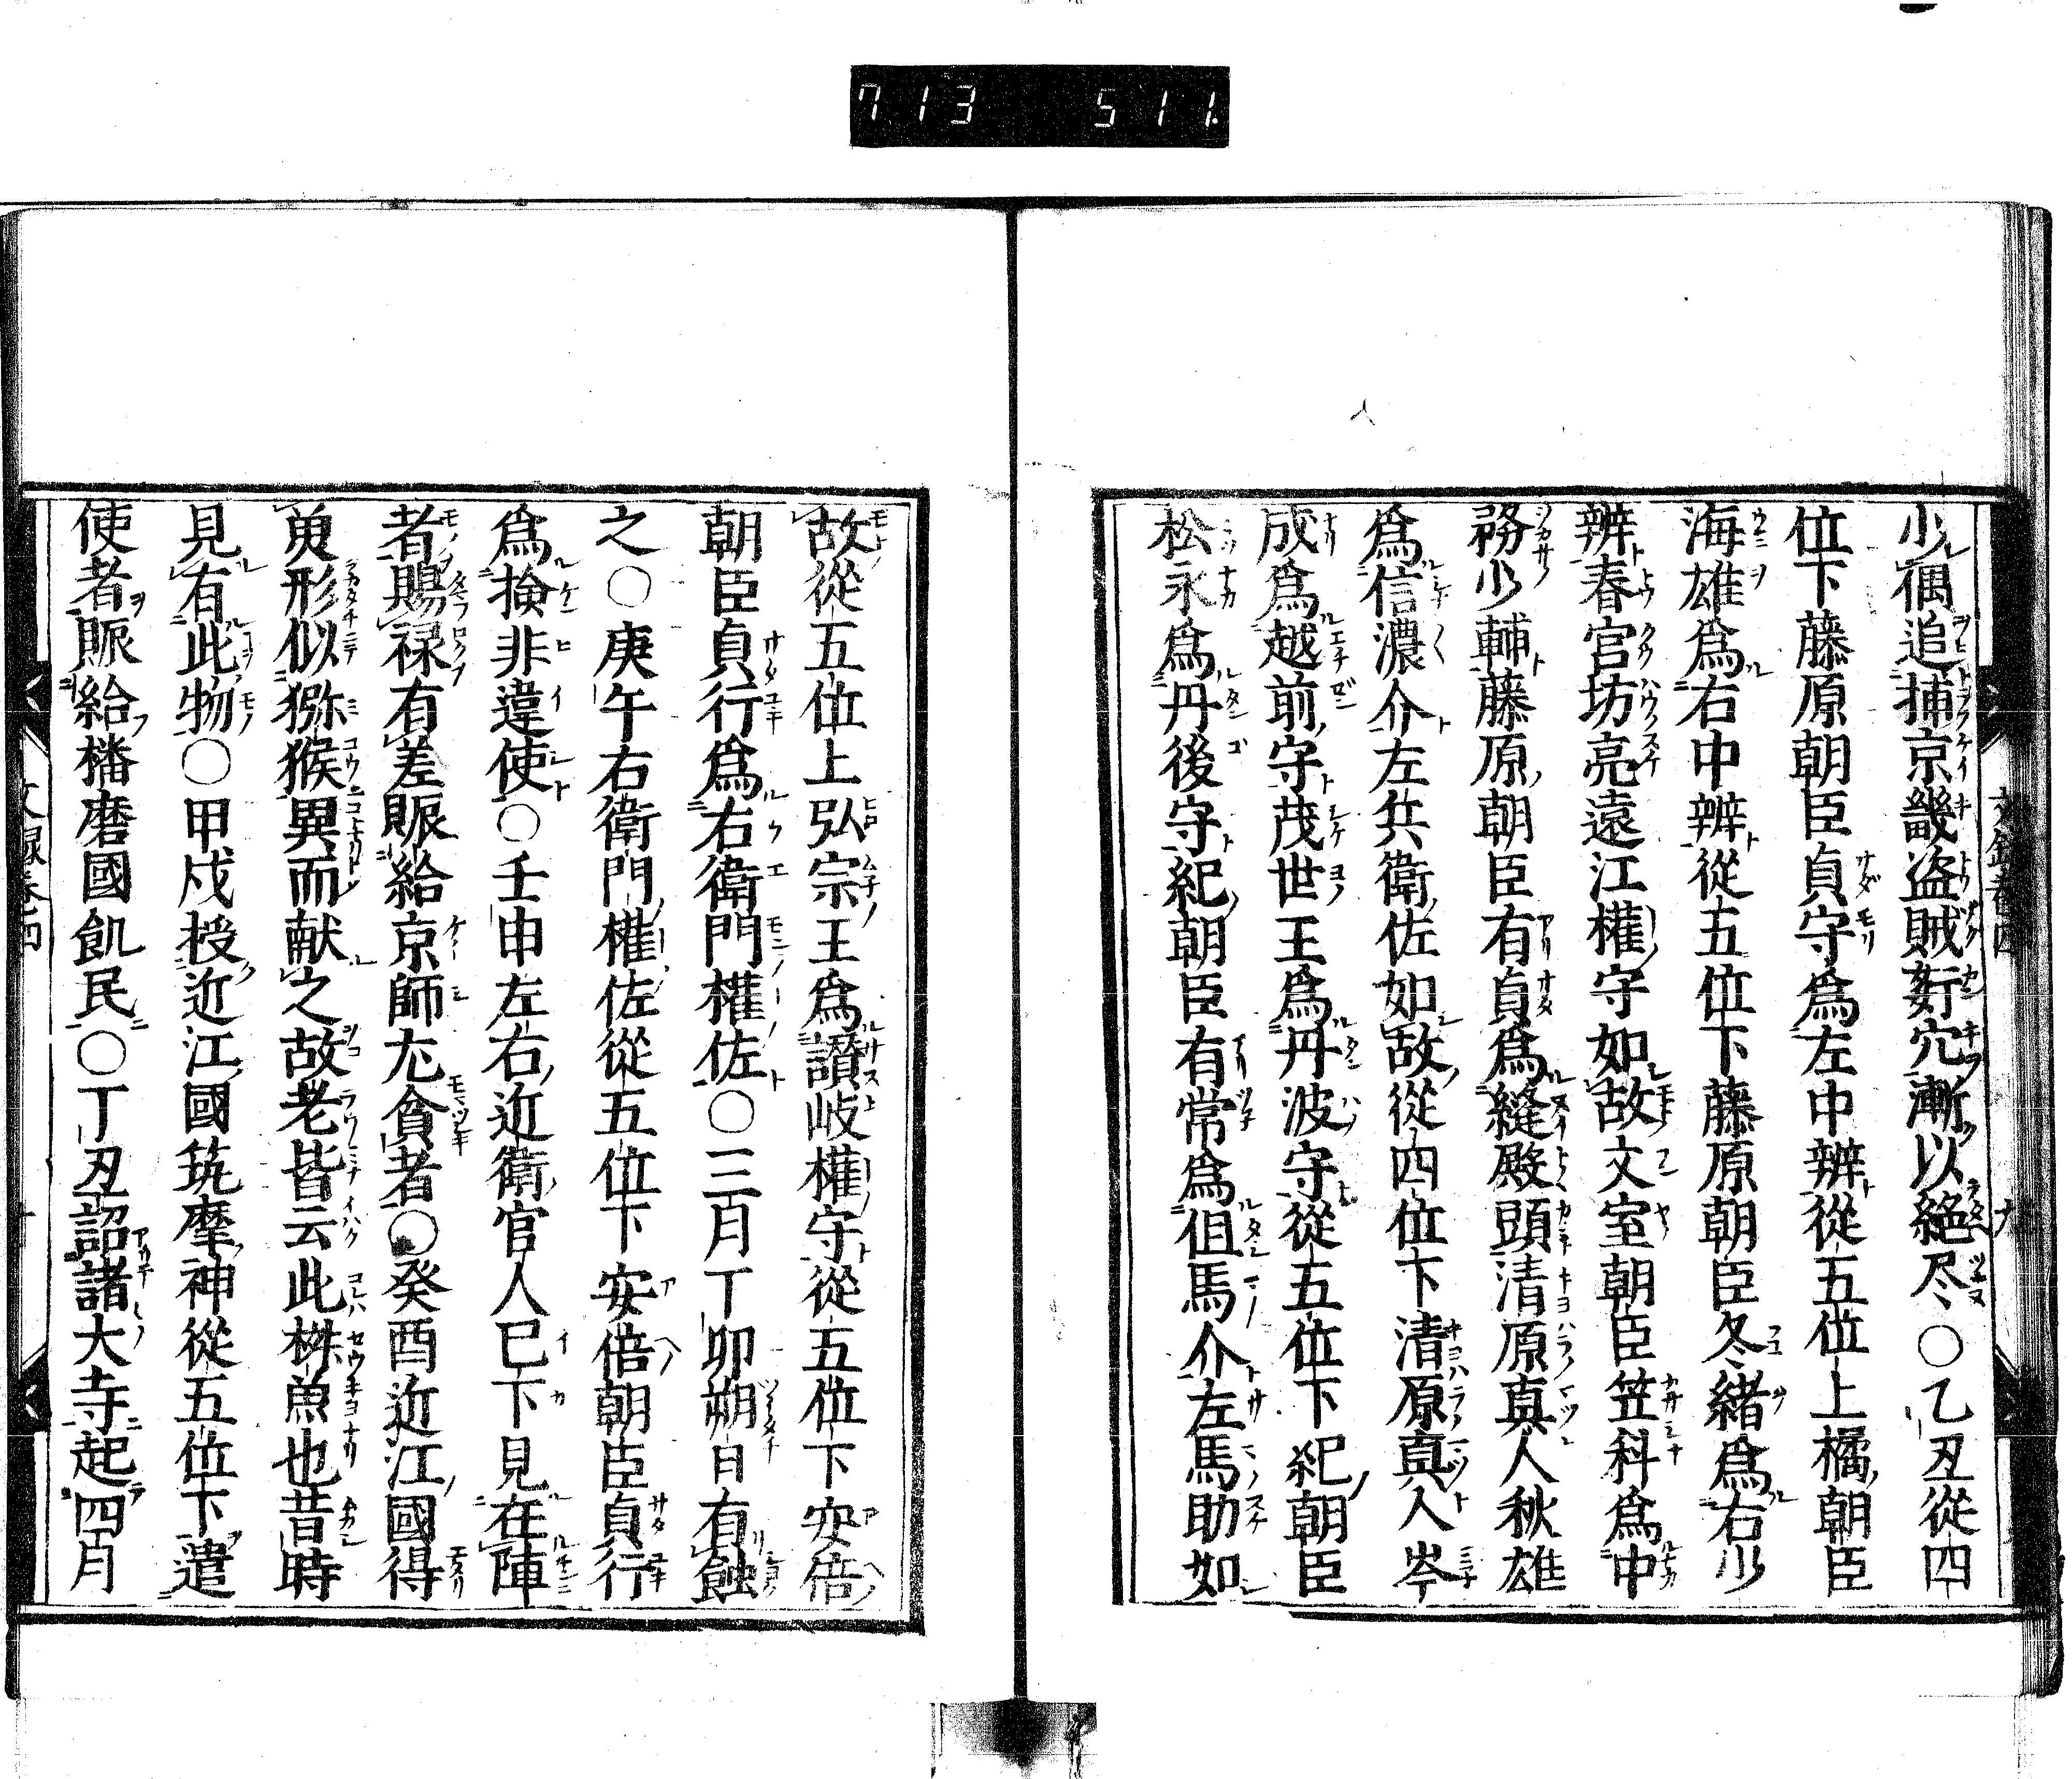 713 511.
少偶追捕京畿盗賊姧宄漸以絶尽〇乙丑從四
位下藤原朝臣貞守爲左中辨從五位上橘朝臣
海雄爲右中辨從五位下藤原朝臣冬緒爲右少
辨春宮坊亮遠江權守如故文室朝臣笠科爲中
務少輔藤原朝臣有貞爲縫殿頭清原真人秋雄
爲信濃介左兵衛佐如故從四位下清原真人岑
成爲越前守茂世王爲丹波守從五位下紀朝臣
松永爲丹後守紀朝臣有常爲但馬介左馬助如
故從五位上弘宗王爲讃岐權守從五位下安倍
朝臣貞行爲右衛門權佐〇三月丁卯朔日有蝕
之〇庚午右衛門權佐從五位下安倍朝臣貞行
爲撿非違使〇壬申左右近衛官人已下見在陣
者賜禄有差賑給京師尤貧者〇癸酉近江國得
魚形似獼猴異而献之故老皆云此椕魚也昔時
見有此物〇甲戌授近江國筑摩神從五位下遣
使者賑給播磨國飢民〇丁丑詔諸大寺起四月
文録卷四